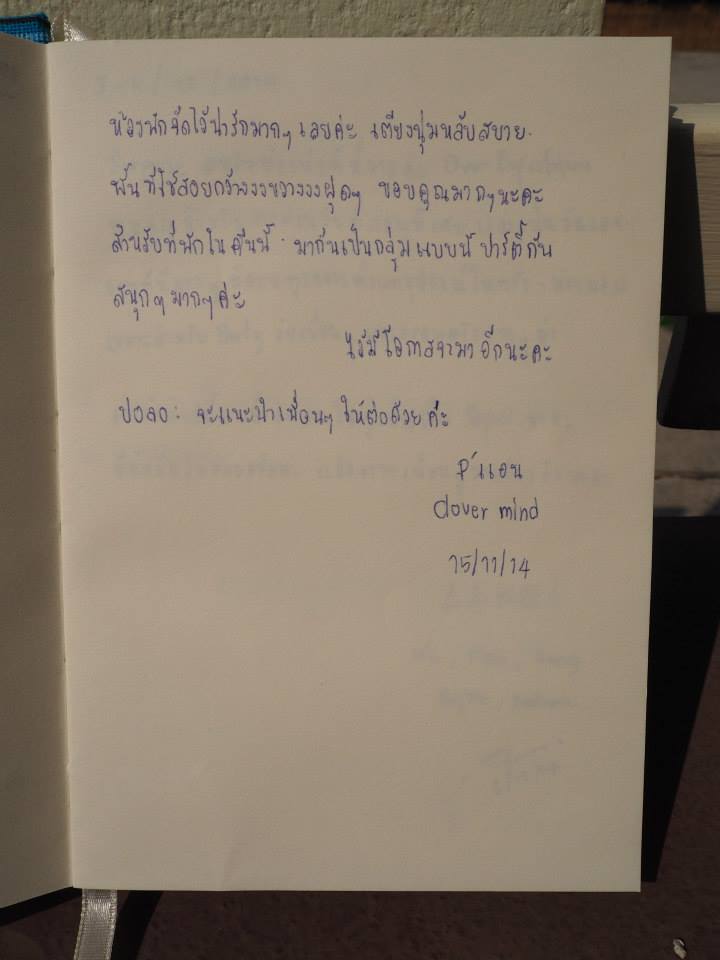 ห้องพักจัดไว้น่ารักมากๆ เลยค่ะ เตียงนุ่มหลับสบาย.
พื้นที่ใช้สอยกว้างงงขวางงงฝุดๆ ขอบคุณมากๆนะคะ
สำหรับที่พักในคืนนี้ . มากันเป็นกลุ่มแบบนี้ ปาร์ตี้กัน
สนุกๆมากๆค่ะ
ไว้มีโอกาสจะมาอีกนะคะ
ปอลอ : จะแนะนำเพื่อนๆ ให้ต่อด้วยค่ะ
P'แอน
Clover mind
15/11/14